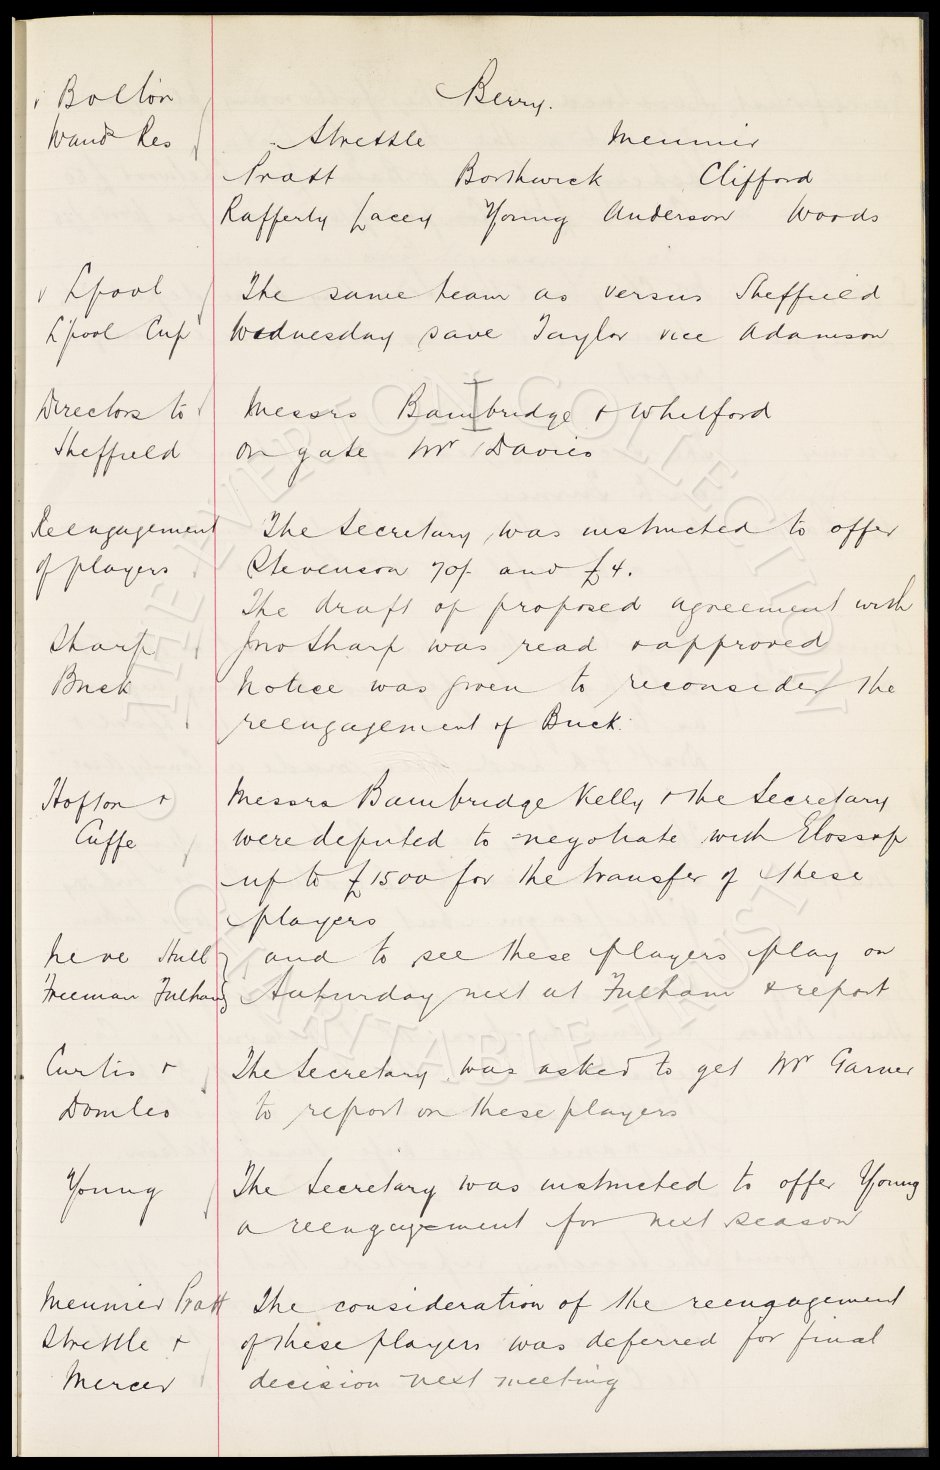 v Bolton
Wand Res
Berry.
Strettle Meunier
Pratt Borthwick Clifford
Rafferty Lacey Young Anderson Woods
v L'pool
L'pool Cup
The same team as versus Sheffield
Wednesday save Taylor vice Adamson
Directors to
Sheffield
Messrs Bambridge & Whitford
on gate Mr Davies
Reengagement
of players
The Secretary was instructed to offer
Stevenson 70/- and £4.
The draft of proposed agreement with
Sharp
Jno Sharp was read & approved
Buck
Notice was given to reconsider the
reengagement of Buck.
Hofton &
Cuffe
Messrs Bambridge Kelly & the Secretary
were deputed to negotiate with Glossop
up to £1500 for the transfer of these
players
Neve Hull
Freeman Fulham
and to see these players play on
Saturday next at Fulham & report
Curtis &
Domleo
The Secretary was asked to get Mr Garner
to report on these players
Young
The Secretary was instructed to offer Young
a reengagement for next season
Meunier Pratt
Strettle &
Mercer
The consideration of the reengagement
of these players was deferred for final
decision next meeting
THE EVERTON COLLECTION
CHARITABLE TRUST